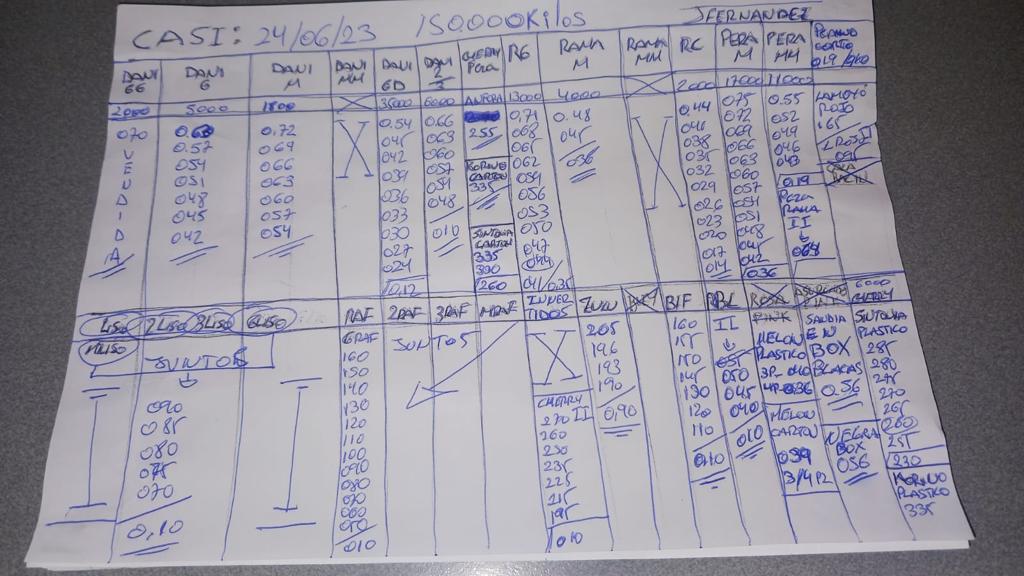 CASI: 24/06/23 150.000Kilos JFERNANDEZ
DANI GG DANI G DANI M DANI MM DANI GD DANI 2 3 CHERRY PERA RG RAMA M RAMA MM RC PERA M PERA MM
2000 5000 1800 X 35000 6000 13000 4000 X 2000 17000 11000
070 VENDIDA
0.63
0.57
054
051
048
045
042
0.72
069
066
063
060
057
054
0.54
045
042
039
036
033
030
027
024
0.12
0.66
063
060
057
051
048
010
255
CARTON
335
CARTON
335
300
260
0.71
068
065
062
059
056
053
050
047
044
041/0.35
0.48
045
036
0.44
041
038
035
032
029
026
023
020
017
014
0.75
072
069
066
063
060
057
054
051
048
045
042
0.36
0.55
052
049
046
043
019
PERA
RAMA
II
ROJO
165
1LISO 2LISO 3LISO 6LISO
MLISO JUNTOS
090
085
080
075
070
0,10
RAF 2RAF 3RAF MRAF
GRAF JUNTOS
160
150
140
130
120
110
100
090
080
070
060
050
010
INVERTIDOS
CHERRY II
270
260
250
235
225
215
195
010
205
196
193
190
0,90
BIF
160
155
150
145
130
120
110
010
II
055
050
045
040
010
ROSA
PINK
MELON
PLASTICO
3P-040
4P-036
MELON
CARTON
039
3/4P2
SANDIA
EN
BOX
PLACAS
0.56
NEGRA
BOX
056
6000
CHERRY
SUNTONA
PLASTICO
285
280
275
270
265
260
255
230
MORUNO
PLASTICO
335